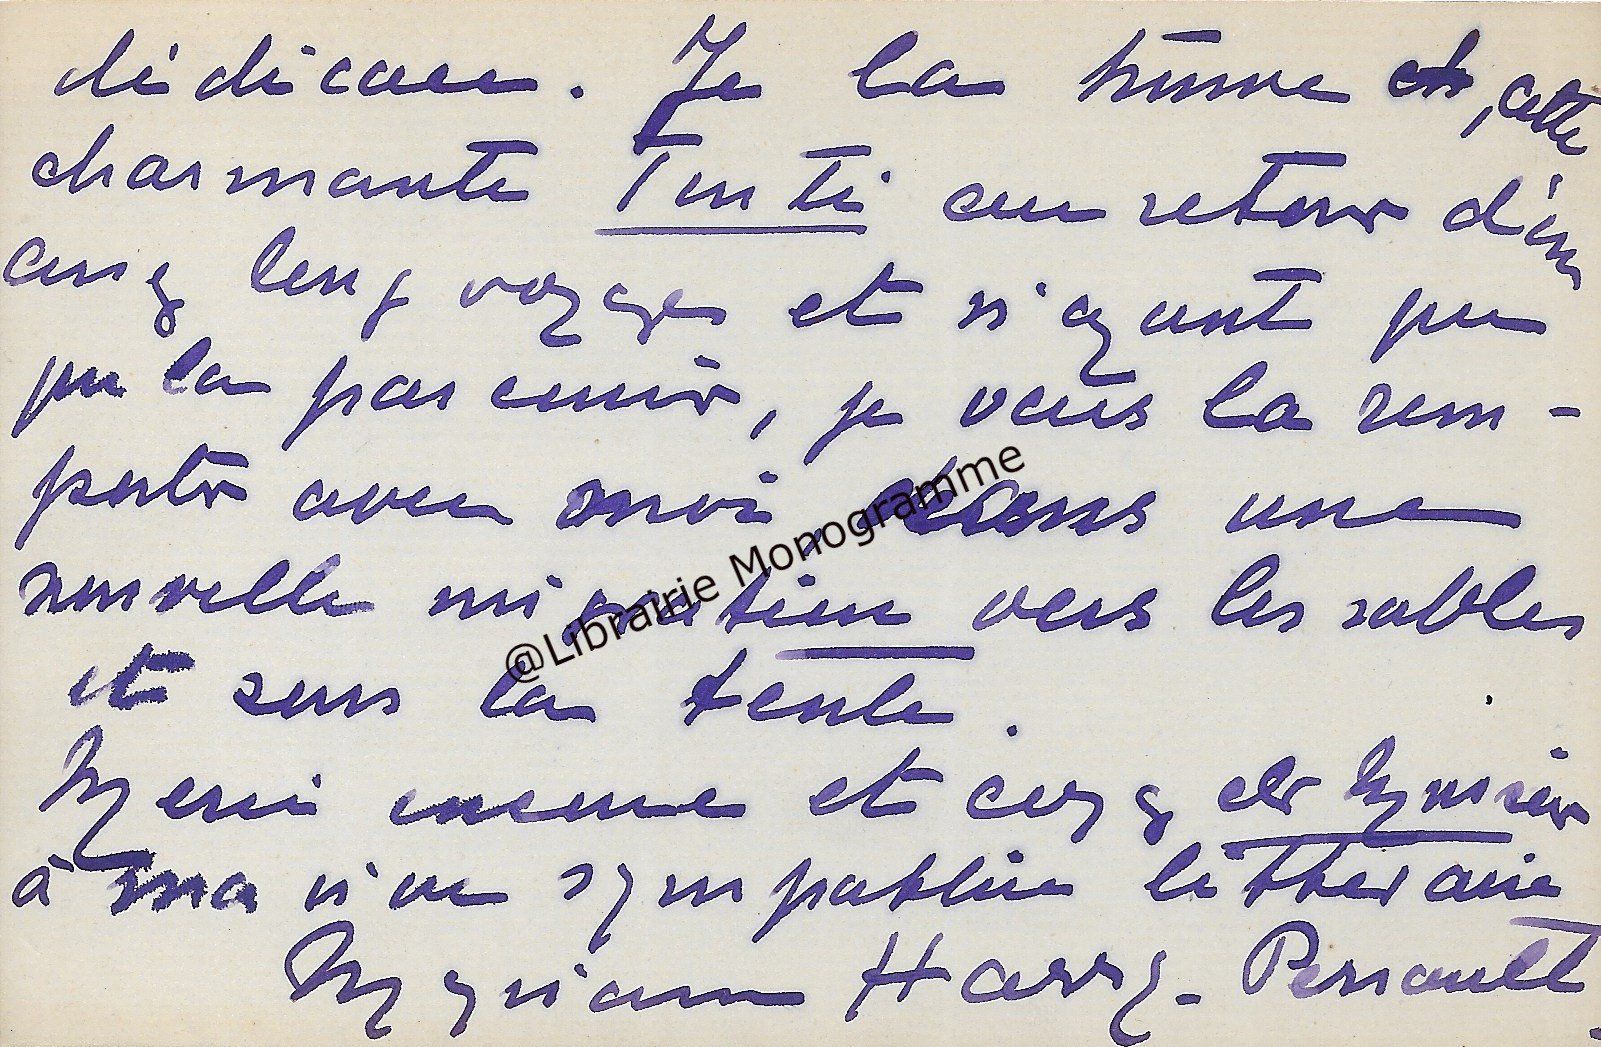 dédicace. Je la trouve, cette
charmante Tonti au retour d'un
long voyage et n'ayant pu
pu la parcourir, je vais la rem-
porter avec moi, dans une
nouvelle migration vers les sables
et sous la tente.
Merci encore et croyez cher Monsieur
à ma vive sympathie littéraire
Myriam Harry-Perrault
@Librairie Monogramme